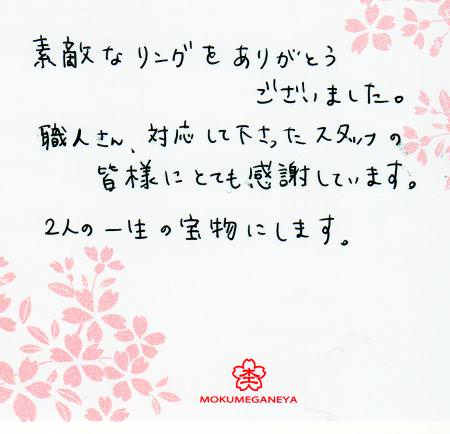 素敵なリングをありがとう
ございました。
職人さん、対応して下さったスタッフの
皆様にとても感謝しています。
2人の一生の宝物にします。
MOKUMEGANEYA